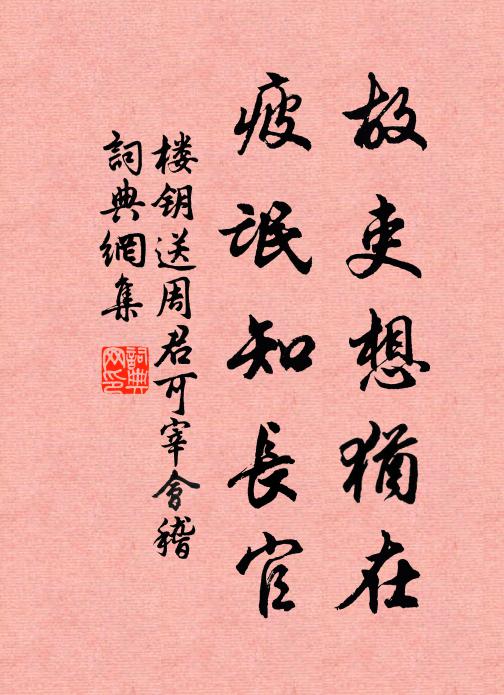 故吏想猶在
疲氓知長官
楼钥送周君可宰會稽
詞典網集
詞典網印